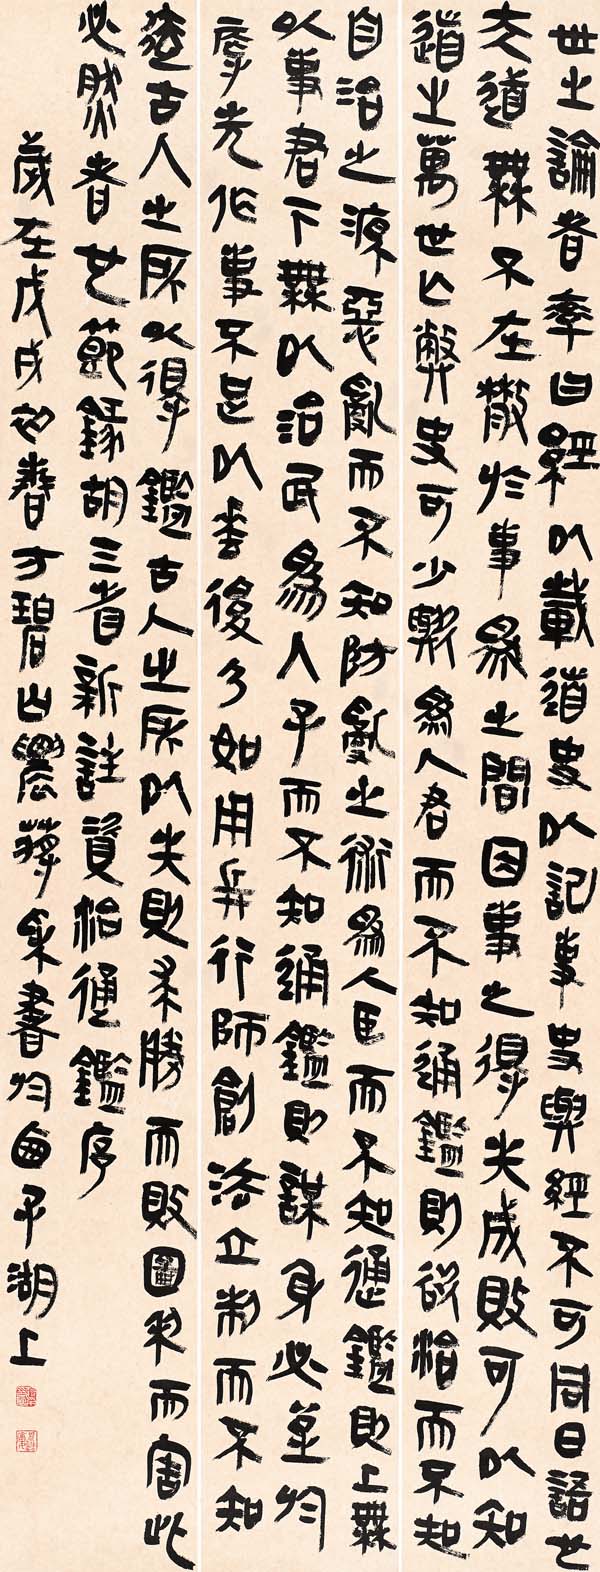 世之論者率曰經以載道史以記事史與經不可同日語也
夫道無不在散於事為之間因事之得失成敗可以知
道之萬世亡弊史可少歟為人君而不知通鑑則欲治而不知
自治之源惡亂而不知防亂之術為人臣而不知通鑑則上無
以事君下無以治民為人子而不知通鑑則謀身必至於
辱先作事不足以垂後乃如用兵行師創法立制而不知
迹古人之所以得鑑古人之所以失則求勝而敗圖利而害此
必然者也節錄胡三省新註資治通鑑序
歲在戊戌初春方碧山農蔣書於西子湖上